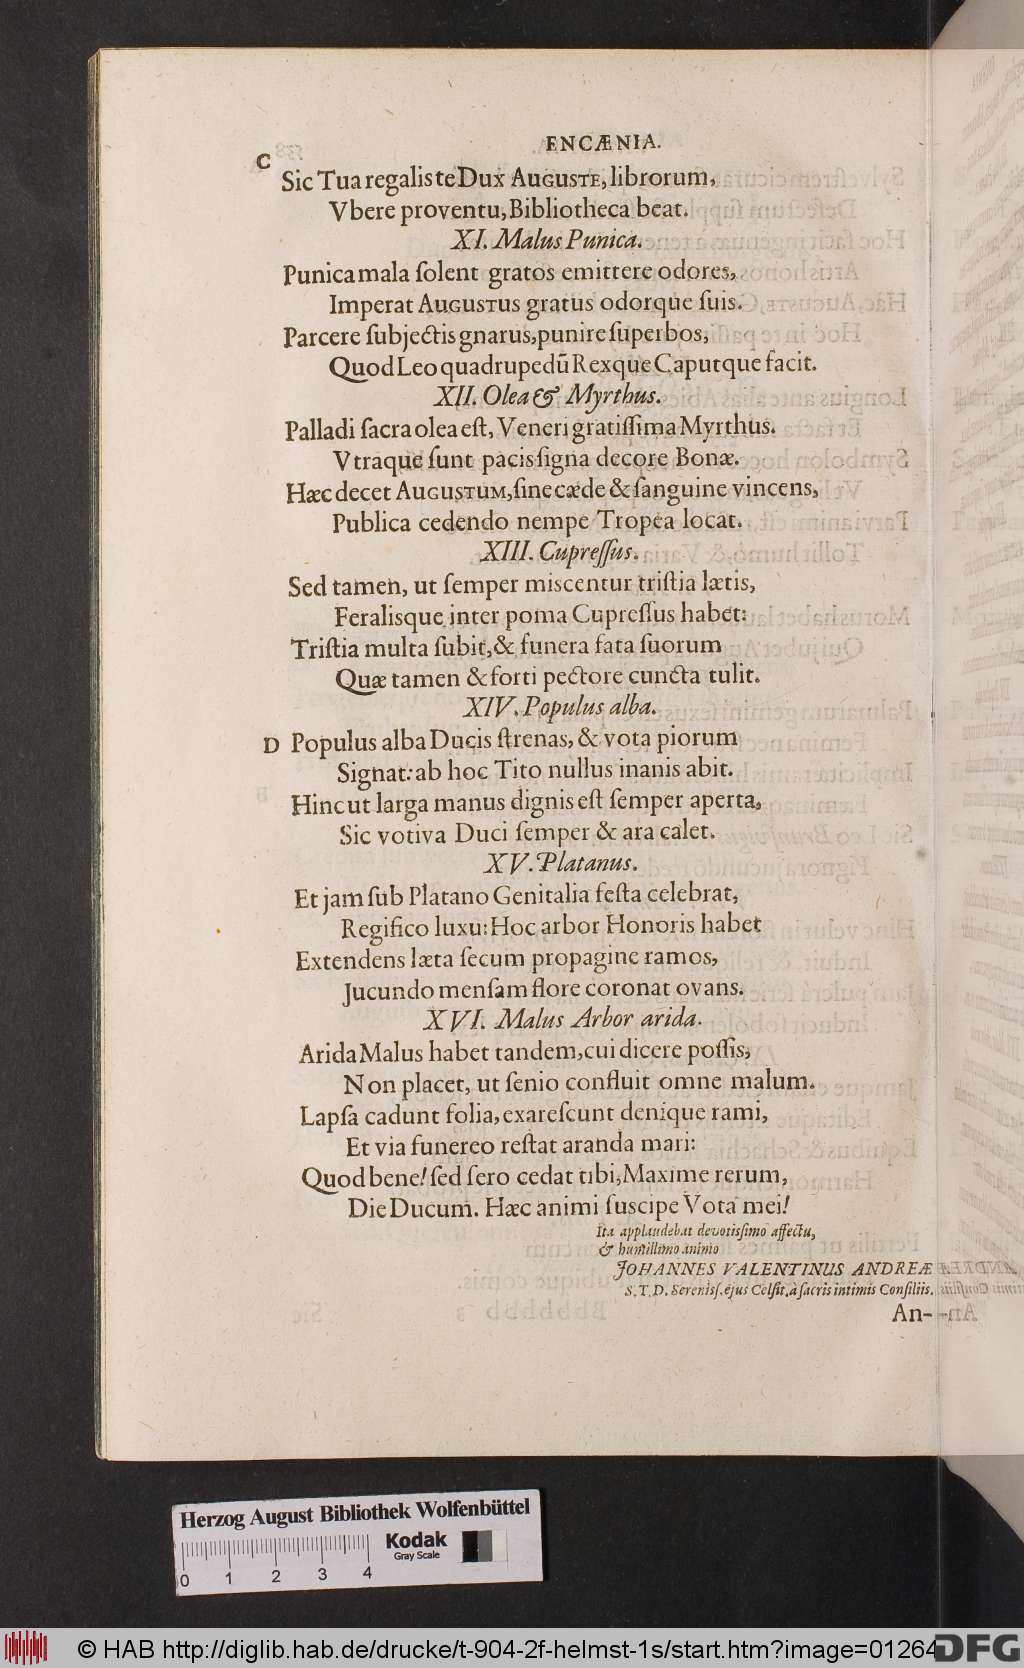 ENCÆNIA.
C
Sic Tua regalis te Dux AUGUSTE, librorum,
Vbere proventu, Bibliotheca beat.
XI. Malus Punica.
Punica mala ſolent gratos emittere odores,
Imperat AUGUSTUS gratus odorque ſuis.
Parcere ſubjectis gnarus, punire ſuperbos,
Quod Leo quadrupedũ Rexque Caputque facit.
XII. Olea & Myrthus.
Palladi ſacra olea eſt, Veneri gratiſſima Myrthus.
Vtraque ſunt pacis ſigna decore Bonæ.
Hæc decet AUGUSTUM, ſine cæde & ſanguine vincens,
Publica cedendo nempe Tropea locat.
XIII. Cupreſſus.
Sed tamen, ut ſemper miſcentur triſtia lætis,
Feralisque inter poma Cupreſſus habet:
Triſtia multa ſubit, & funera fata ſuorum
Quæ tamen & forti pectore cuncta tulit.
XIV. Populus alba.
D Populus alba Ducis ſtrenas, & vota piorum
Signat: ab hoc Tito nullus inanis abit.
Hinc ut larga manus dignis eſt ſemper aperta,
Sic votiva Duci ſemper & ara calet.
XV. Platanus.
Et jam ſub Platano Genitalia feſta celebrat,
Regifico luxu: Hoc arbor Honoris habet
Extendens læta ſecum propagine ramos,
Jucundo menſam flore coronat ovans.
XVI. Malus Arbor arida.
Arida Malus habet tandem, cui dicere poſſis,
Non placet, ut ſenio confluit omne malum.
Lapſa cadunt folia, exareſcunt denique rami,
Et via funereo reſtat aranda mari:
Quod bene! ſed ſero cedat tibi, Maxime rerum,
Die Ducum. Hæc animi ſuſcipe Vota mei!
Ita applaudebat devotiſsimo affectu,
& humillimo animo
JOHANNES VALENTINUS ANDREÆ
S. T. D. Sereniſ. ejus Celſit. à ſacris intimis Conſiliis.
An-
Herzog August Bibliothek Wolfenbüttel
Kodak
Gray Scale
0 1 2 3 4
© HAB http://diglib.hab.de/drucke/t-904-2f-helmst-1s/start.htm?image=01264
DFG